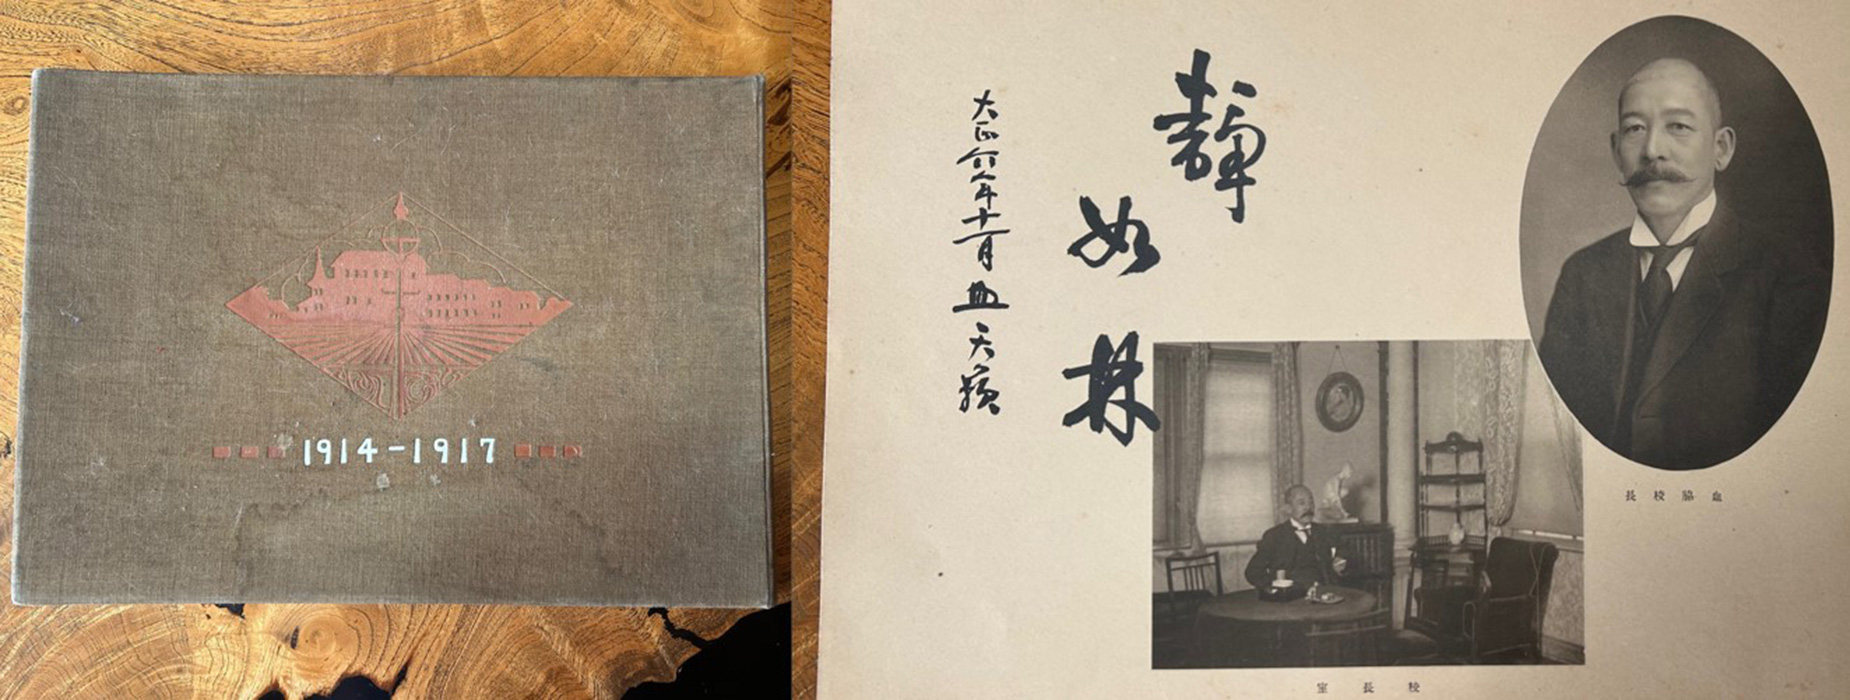 1914-1917
靜如林
大正六年十一月 血 天
血脇校長
校長室